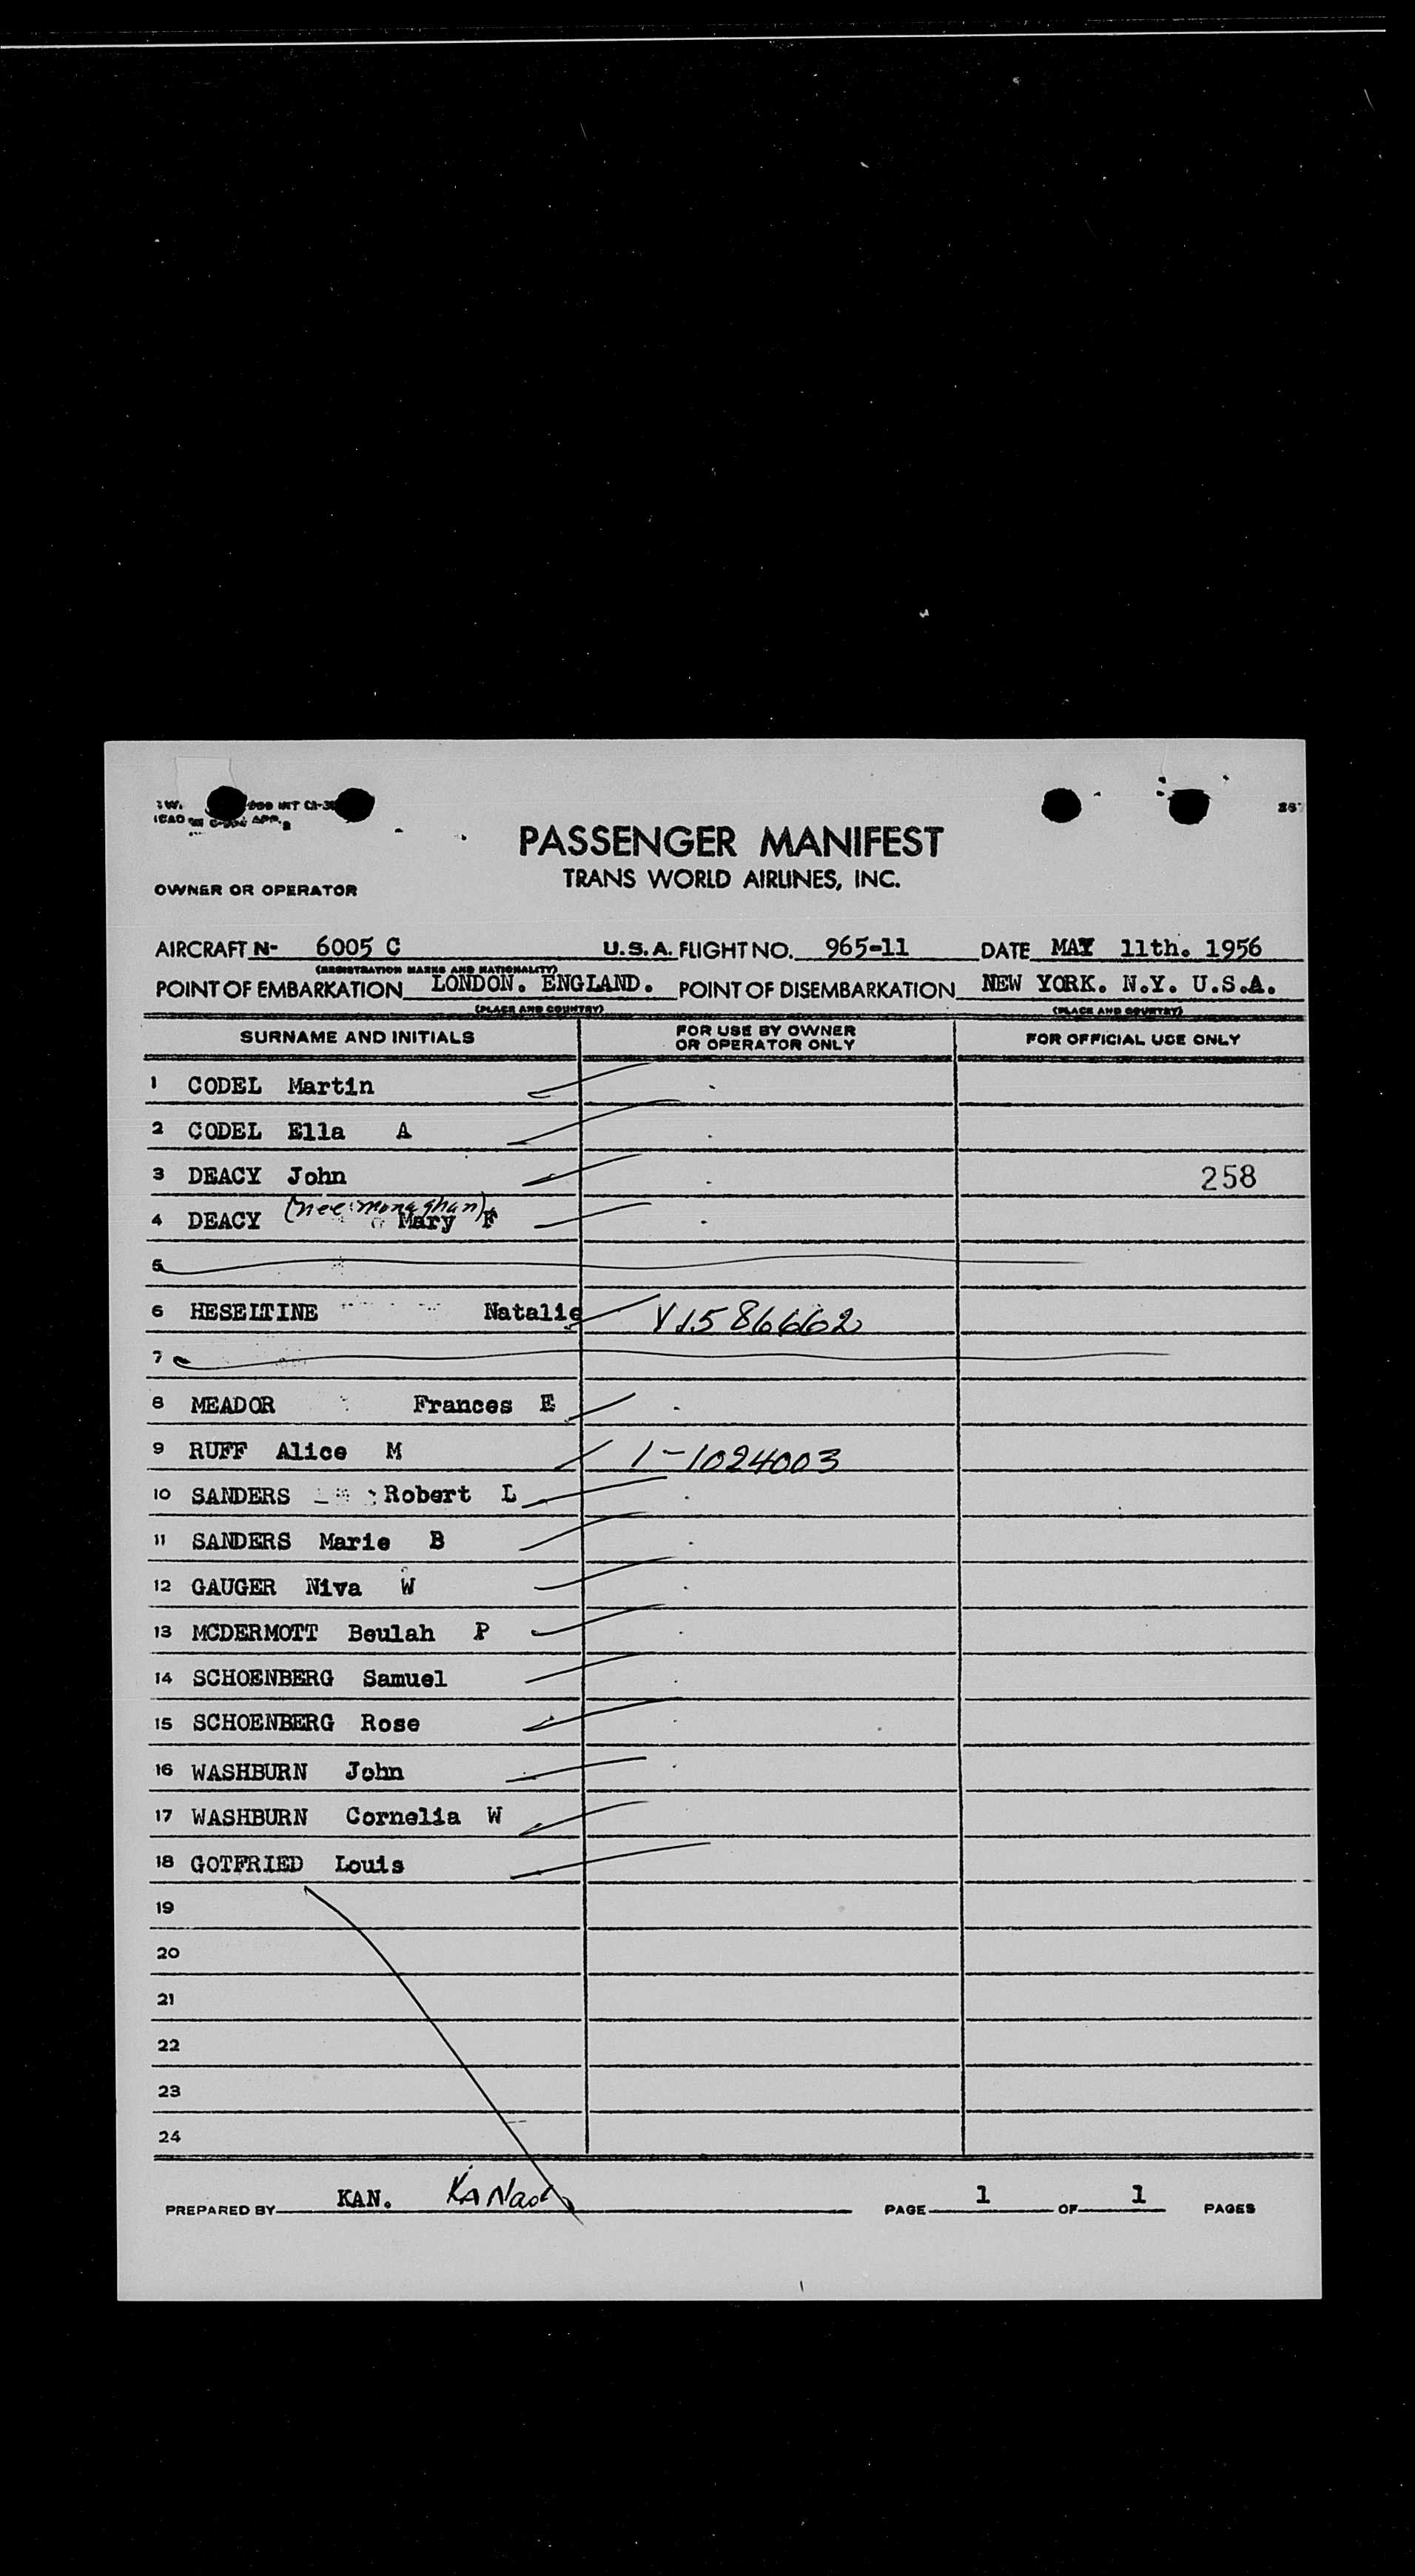 PASSENGER MANIFEST
TRANS WORLD AIRLINES, INC.
OWNER OR OPERATOR
AIRCRAFT N- 6005 C U.S.A. FLIGHT NO. 965-11 DATE MAY 11th. 1956
(REGISTRATION MARKS AND NATIONALITY)
POINT OF EMBARKATION LONDON. ENGLAND. POINT OF DISEMBARKATION NEW YORK. N.Y. U.S.A.
(PLACE AND COUNTRY) (PLACE AND COUNTRY)
SURNAME AND INITIALS FOR USE BY OWNER OR OPERATOR ONLY FOR OFFICIAL USE ONLY
1 CODEL Martin
2 CODEL Ella A
3 DEACY John 258
4 DEACY (nee: monaghan) Mary F
5
6 HESELTINE Natalie V1586662
7
8 MEADOR Frances E
9 RUFF Alice M 1-1024003
10 SANDERS Robert L
11 SANDERS Marie B
12 GAUGER Niva W
13 MCDERMOTT Beulah P
14 SCHOENBERG Samuel
15 SCHOENBERG Rose
16 WASHBURN John
17 WASHBURN Cornelia W
18 GOTFRIED Louis
19
20
21
22
23
24
PREPARED BY KAN. PAGE 1 OF 1 PAGES